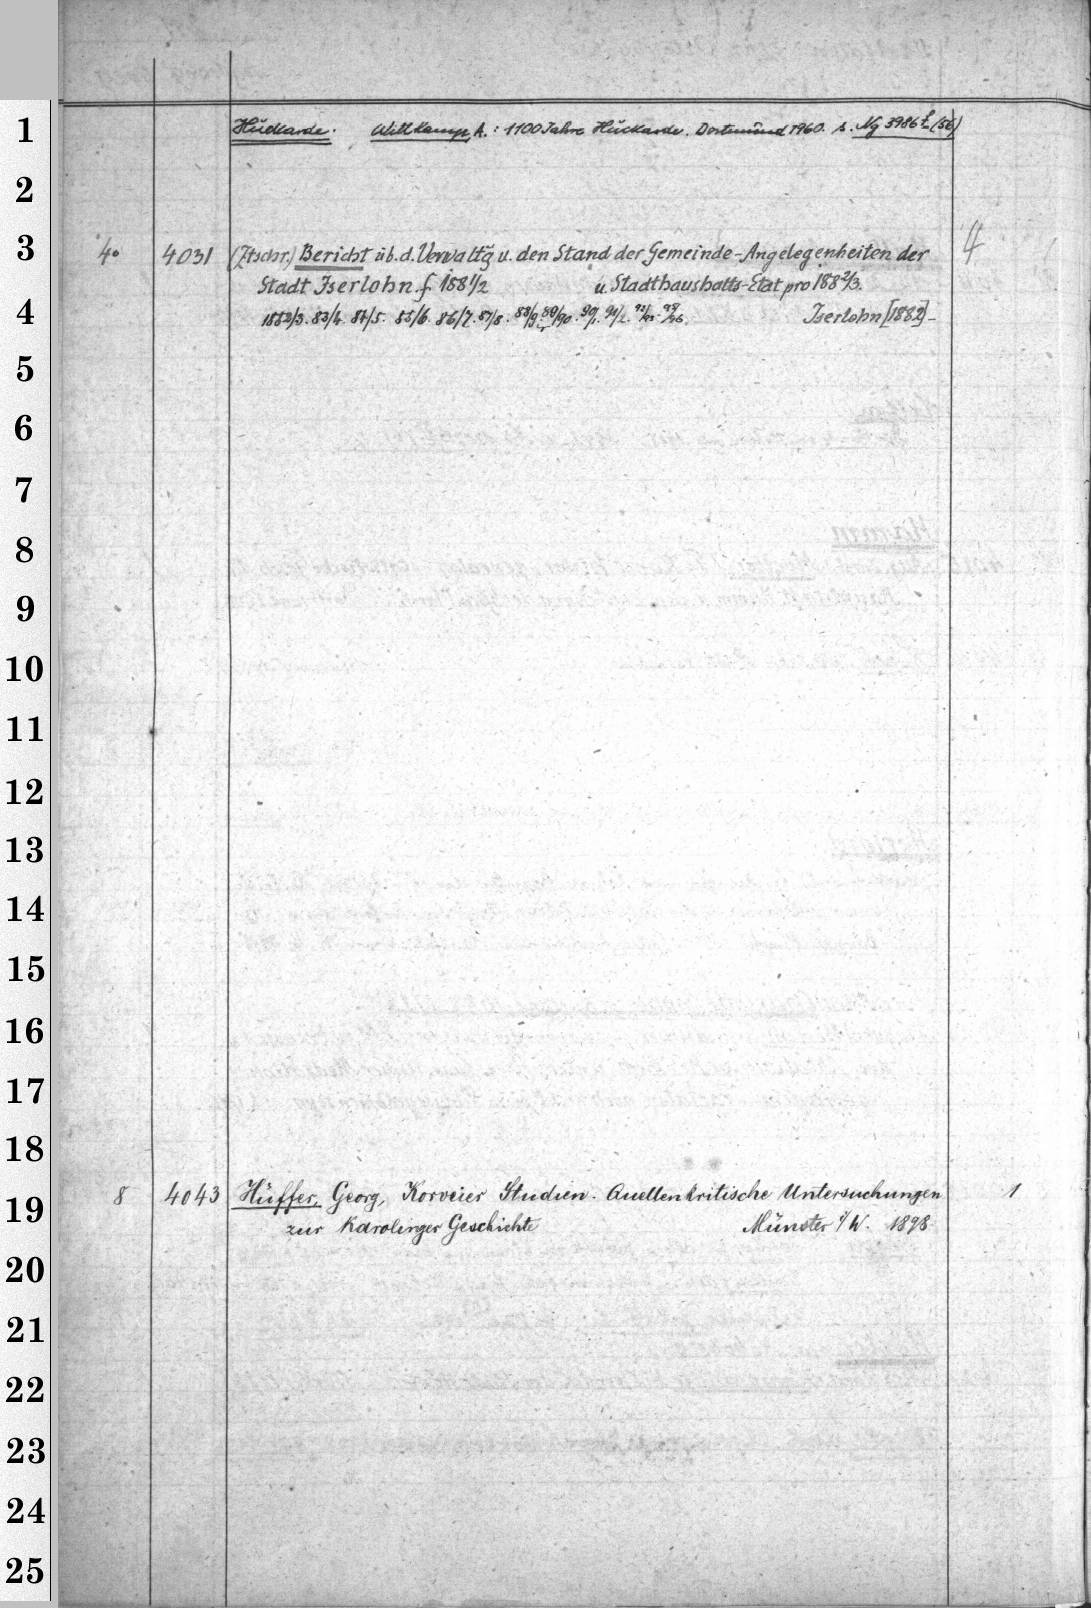 1
Hückarde. Wittkamp, A.: 1100 Jahre Hückarde. Dortmund 1960. s. Ng 3986 f (56)
2
3
4° 4031 (Ztschr.) Bericht üb. d. Verwaltg u. den Stand der Gemeinde-Angelegenheiten der 4
Stadt Iserlohn f 1881/2 u. Stadthaushatts-Etat pro 1882/3.
4
1882/3. 83/4. 84/5. 85/6. 86/7. 87/8. 88/9. 89/90. 90/1. 91/2. Iserlohn [1882]-
5
6
7
8
9
10
11
12
13
14
15
16
17
18
8 4043 Hüffer, Georg, Korveier Studien. Quellenkritische Untersuchungen 1
19
zur Karolinger Geschichte Münster i/W. 1898
20
21
22
23
24
25